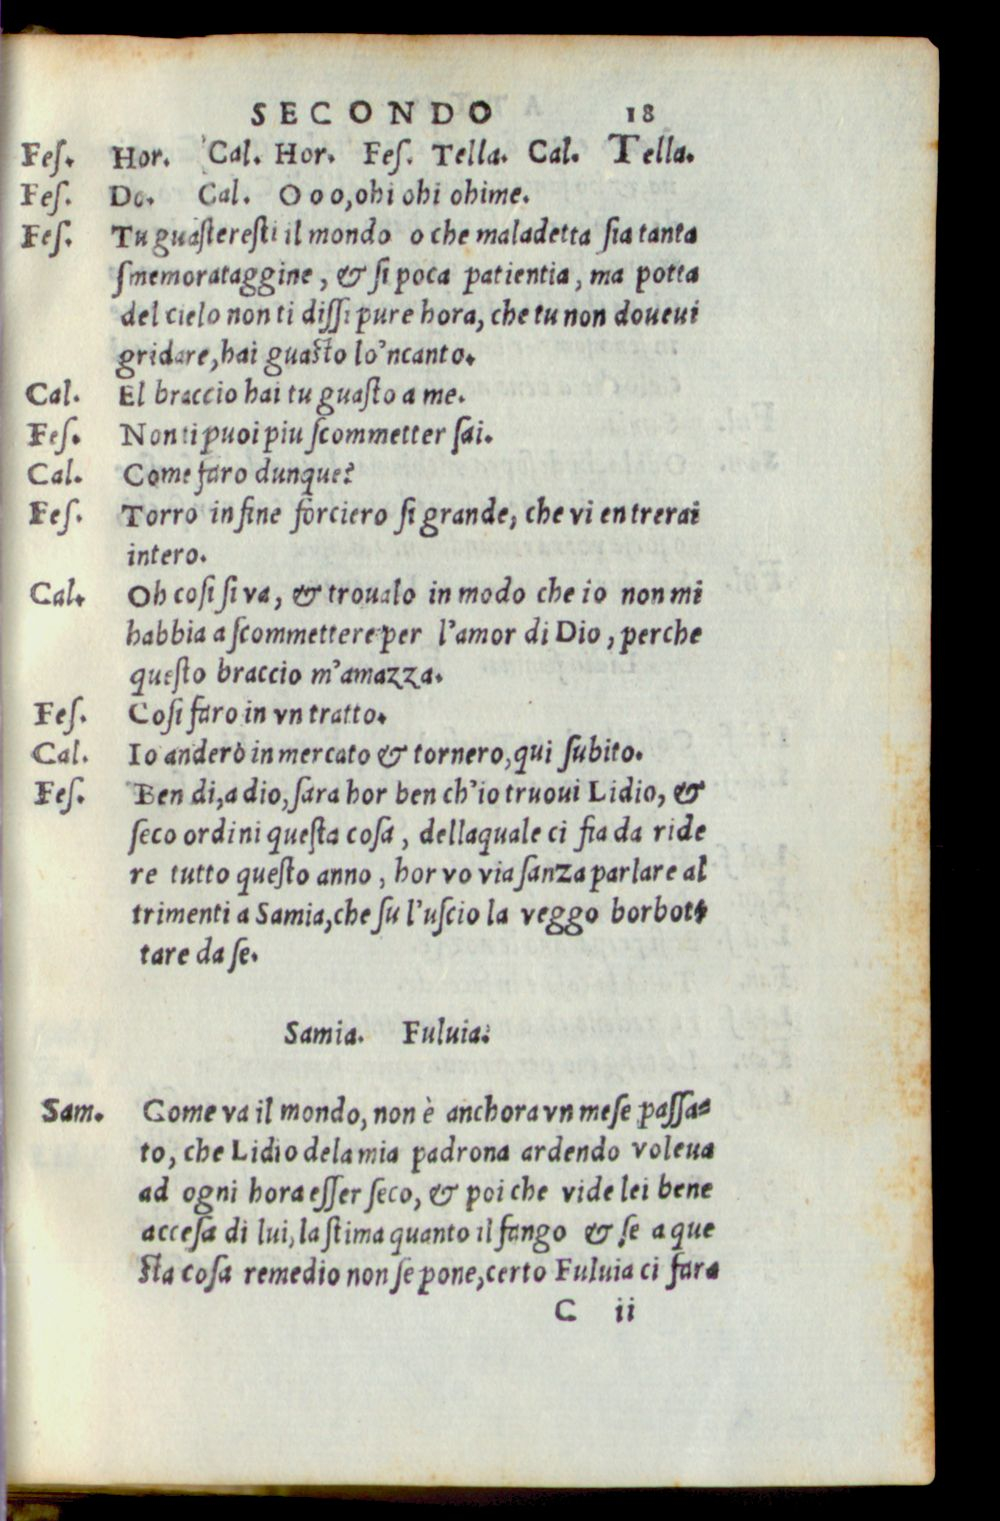 SECONDO 18
Feſ. Hor. Cal. Hor. Feſ. Tella. Cal. Tella.
Feſ. Do. Cal. O o o, ohi ohi ohime.
Feſ. Tu guaſtereſti il mondo o che maladetta ſia tanta
ſmemorataggine, & ſi poca patientia, ma potta
del cielo non ti diſſi pure hora, che tu non doueui
gridare, hai guaſto lo'ncanto.
Cal. El braccio hai tu guaſto a me.
Feſ. Non ti puoi piu ſcommetter ſai.
Cal. Come faro dunque?
Feſ. Torro infine forciero ſi grande, che vi entrerai
intero.
Cal. Oh coſi ſi va, & troualo in modo che io non mi
habbia a ſcommettere per l'amor di Dio, perche
queſto braccio m'amazza.
Feſ. Coſi faro in vn tratto.
Cal. Io anderò in mercato & tornero, qui ſubito.
Feſ. Ben di, a dio, ſara hor ben ch'io truoui Lidio, &
ſeco ordini queſta coſa, dellaquale ci fia da ride
re tutto queſto anno, hor vo via ſanza parlare al
trimenti a Samia, che ſu l'uſcio la veggo borbot-
tare da ſe.
Samia. Fuluia.
Sam. Come va il mondo, non è anchora vn meſe paſſa-
to, che Lidio dela mia padrona ardendo voleua
ad ogni hora eſſer ſeco, & poi che vide lei bene
acceſa di lui, la ſtima quanto il fango & ſe a que
ſta coſa remedio non ſe pone, certo Fuluia ci fara
C ii